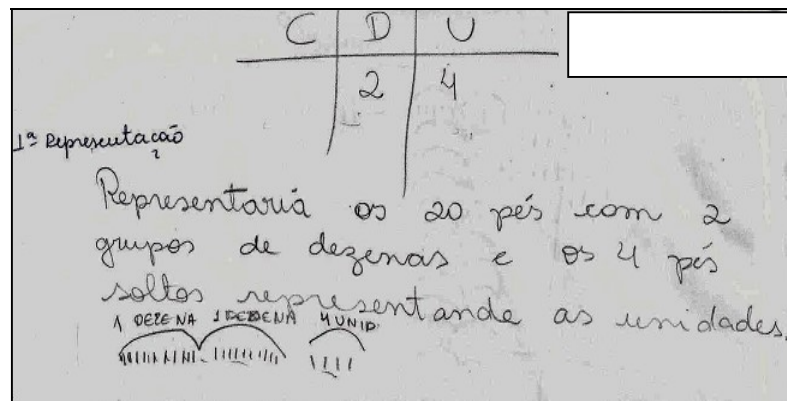 C D U
2 4
1ª Representação
Representaria os 20 pés com 2
grupos de dezenas e os 4 pés
soltos representande as unidades.
1 DEZENA 1 DEZENA 4 UNID.